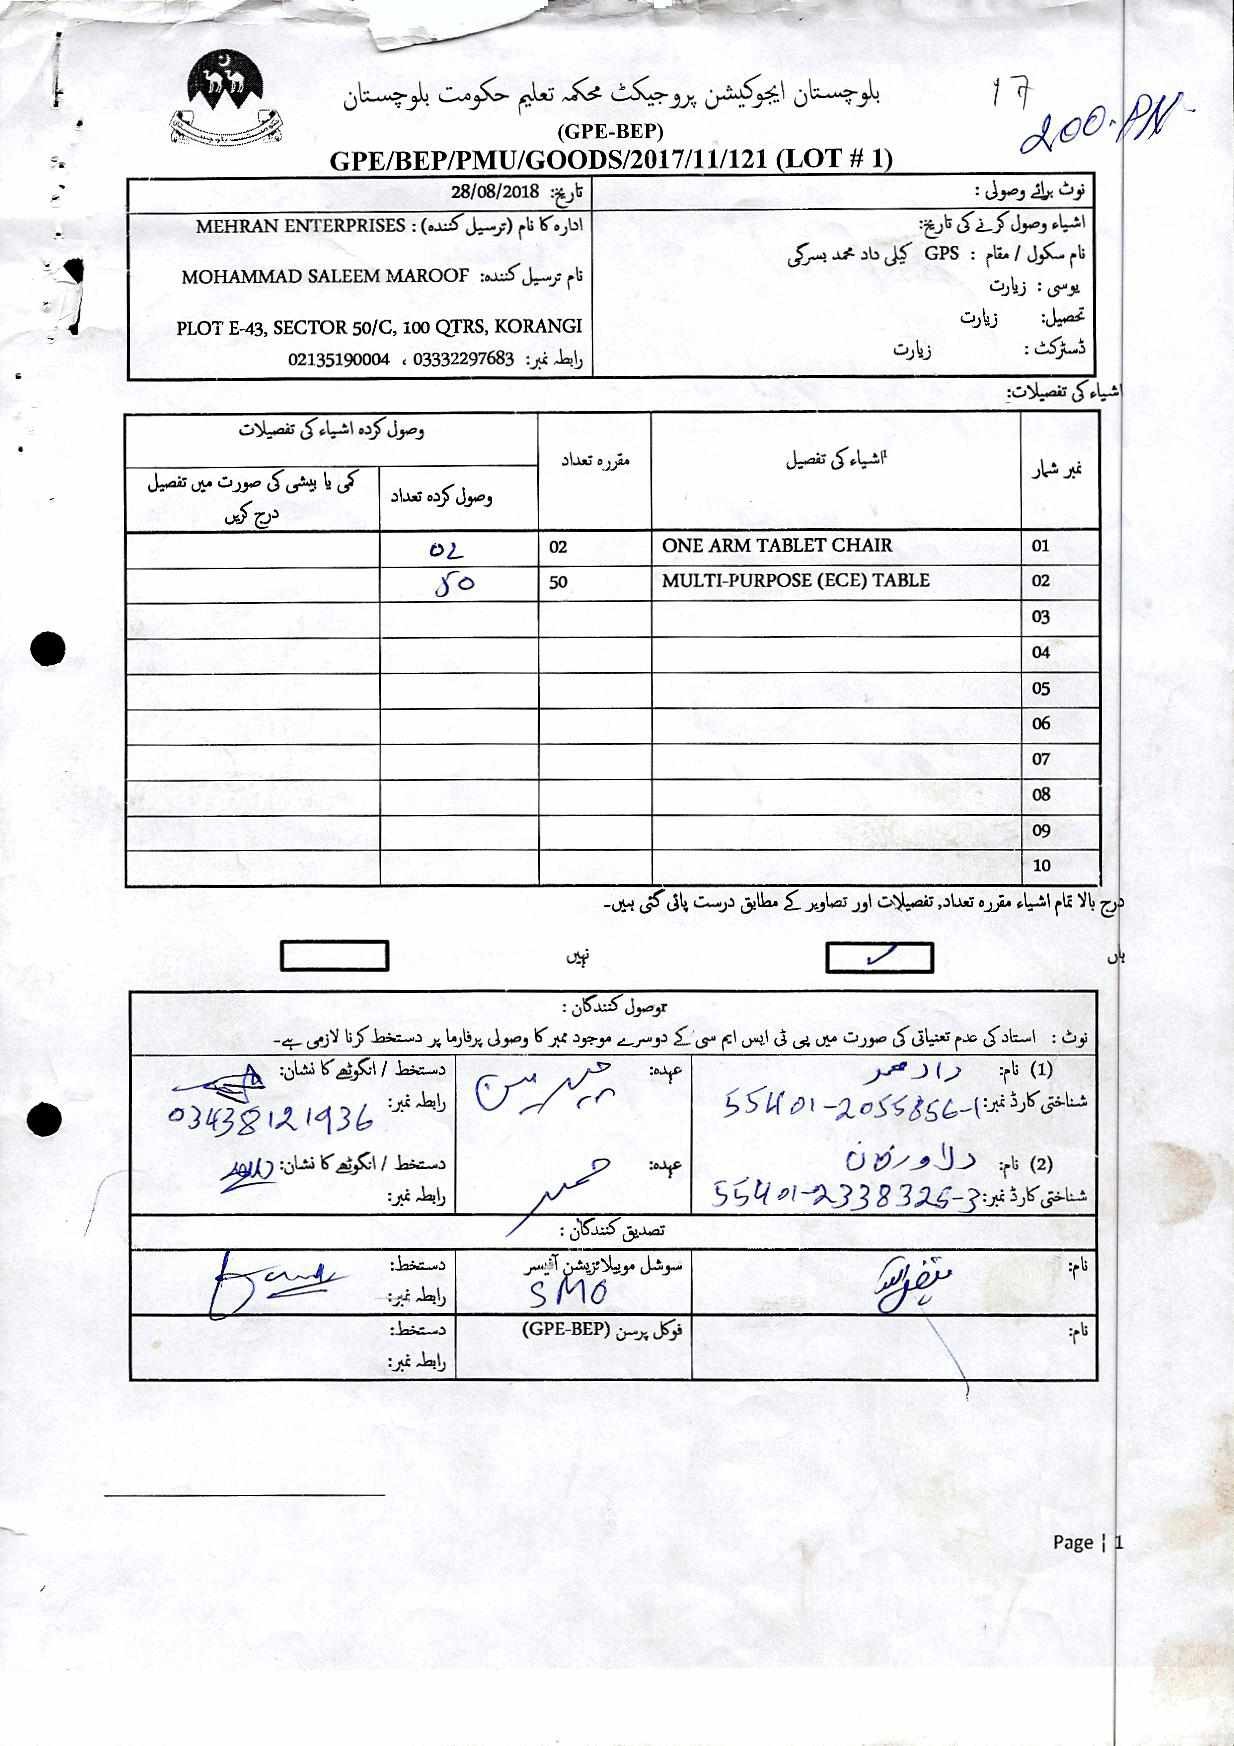 بلوچستان ایجوکیشن پروجیکٹ محکمہ تعلیم حکومت بلوچستان
17
200-PN-
(GPE-BEP)
GPE/BEP/PMU/GOODS/2017/11/121 (LOT # 1)
نوٹ برائے وصولی :
اشیاء وصول کرنے کی تاریخ:
نام سکول / مقام : GPS کیلی داد محمد بسرکی
یوسی : زیارت
تحصیل: زیارت
ڈسٹرکٹ : زیارت
تاریخ: 28/08/2018
ادارہ کا نام (ترسیل کنندہ) : MEHRAN ENTERPRISES
نام ترسیل کنندہ: MOHAMMAD SALEEM MAROOF
PLOT E-43, SECTOR 50/C, 100 QTRS, KORANGI
رابطہ نمبر: 03332297683 ، 02135190004
اشیاء کی تفصیلات:
نمبر شمار
اشیاء کی تفصیل
مقررہ تعداد
وصول کردہ اشیاء کی تفصیلات
وصول کردہ تعداد
کمی یا بیشی کی صورت میں تفصیل درج کریں
01 ONE ARM TABLET CHAIR 02 02
02 MULTI-PURPOSE (ECE) TABLE 50 50
03
04
05
06
07
08
09
10
درج بالا تمام اشیاء مقررہ تعداد, تفصیلات اور تصاویر کے مطابق درست پائی گئی ہیں۔
ہاں ✓ نہیں
وصول کنندگان :
نوٹ : استاد کی عدم تعیناتی کی صورت میں پی ٹی ایس ایم سی کے دوسرے موجود ممبر کا وصولی پرفارما پر دستخط کرنا لازمی ہے۔
(1) نام: داد محمد
شناختی کارڈ نمبر: 55401-2055856-1
عہدہ: چیئرمین
دستخط / انگوٹھے کا نشان:
رابطہ نمبر: 03438121936
(2) نام: دلاور خان
شناختی کارڈ نمبر: 55401-2338325-3
عہدہ: ممبر
دستخط / انگوٹھے کا نشان:
رابطہ نمبر:
تصدیق کنندگان :
نام:
سوشل موبیلائزیشن آفیسر
SMO
دستخط:
رابطہ نمبر:
نام:
فوکل پرسن (GPE-BEP)
دستخط:
رابطہ نمبر:
Page | 1